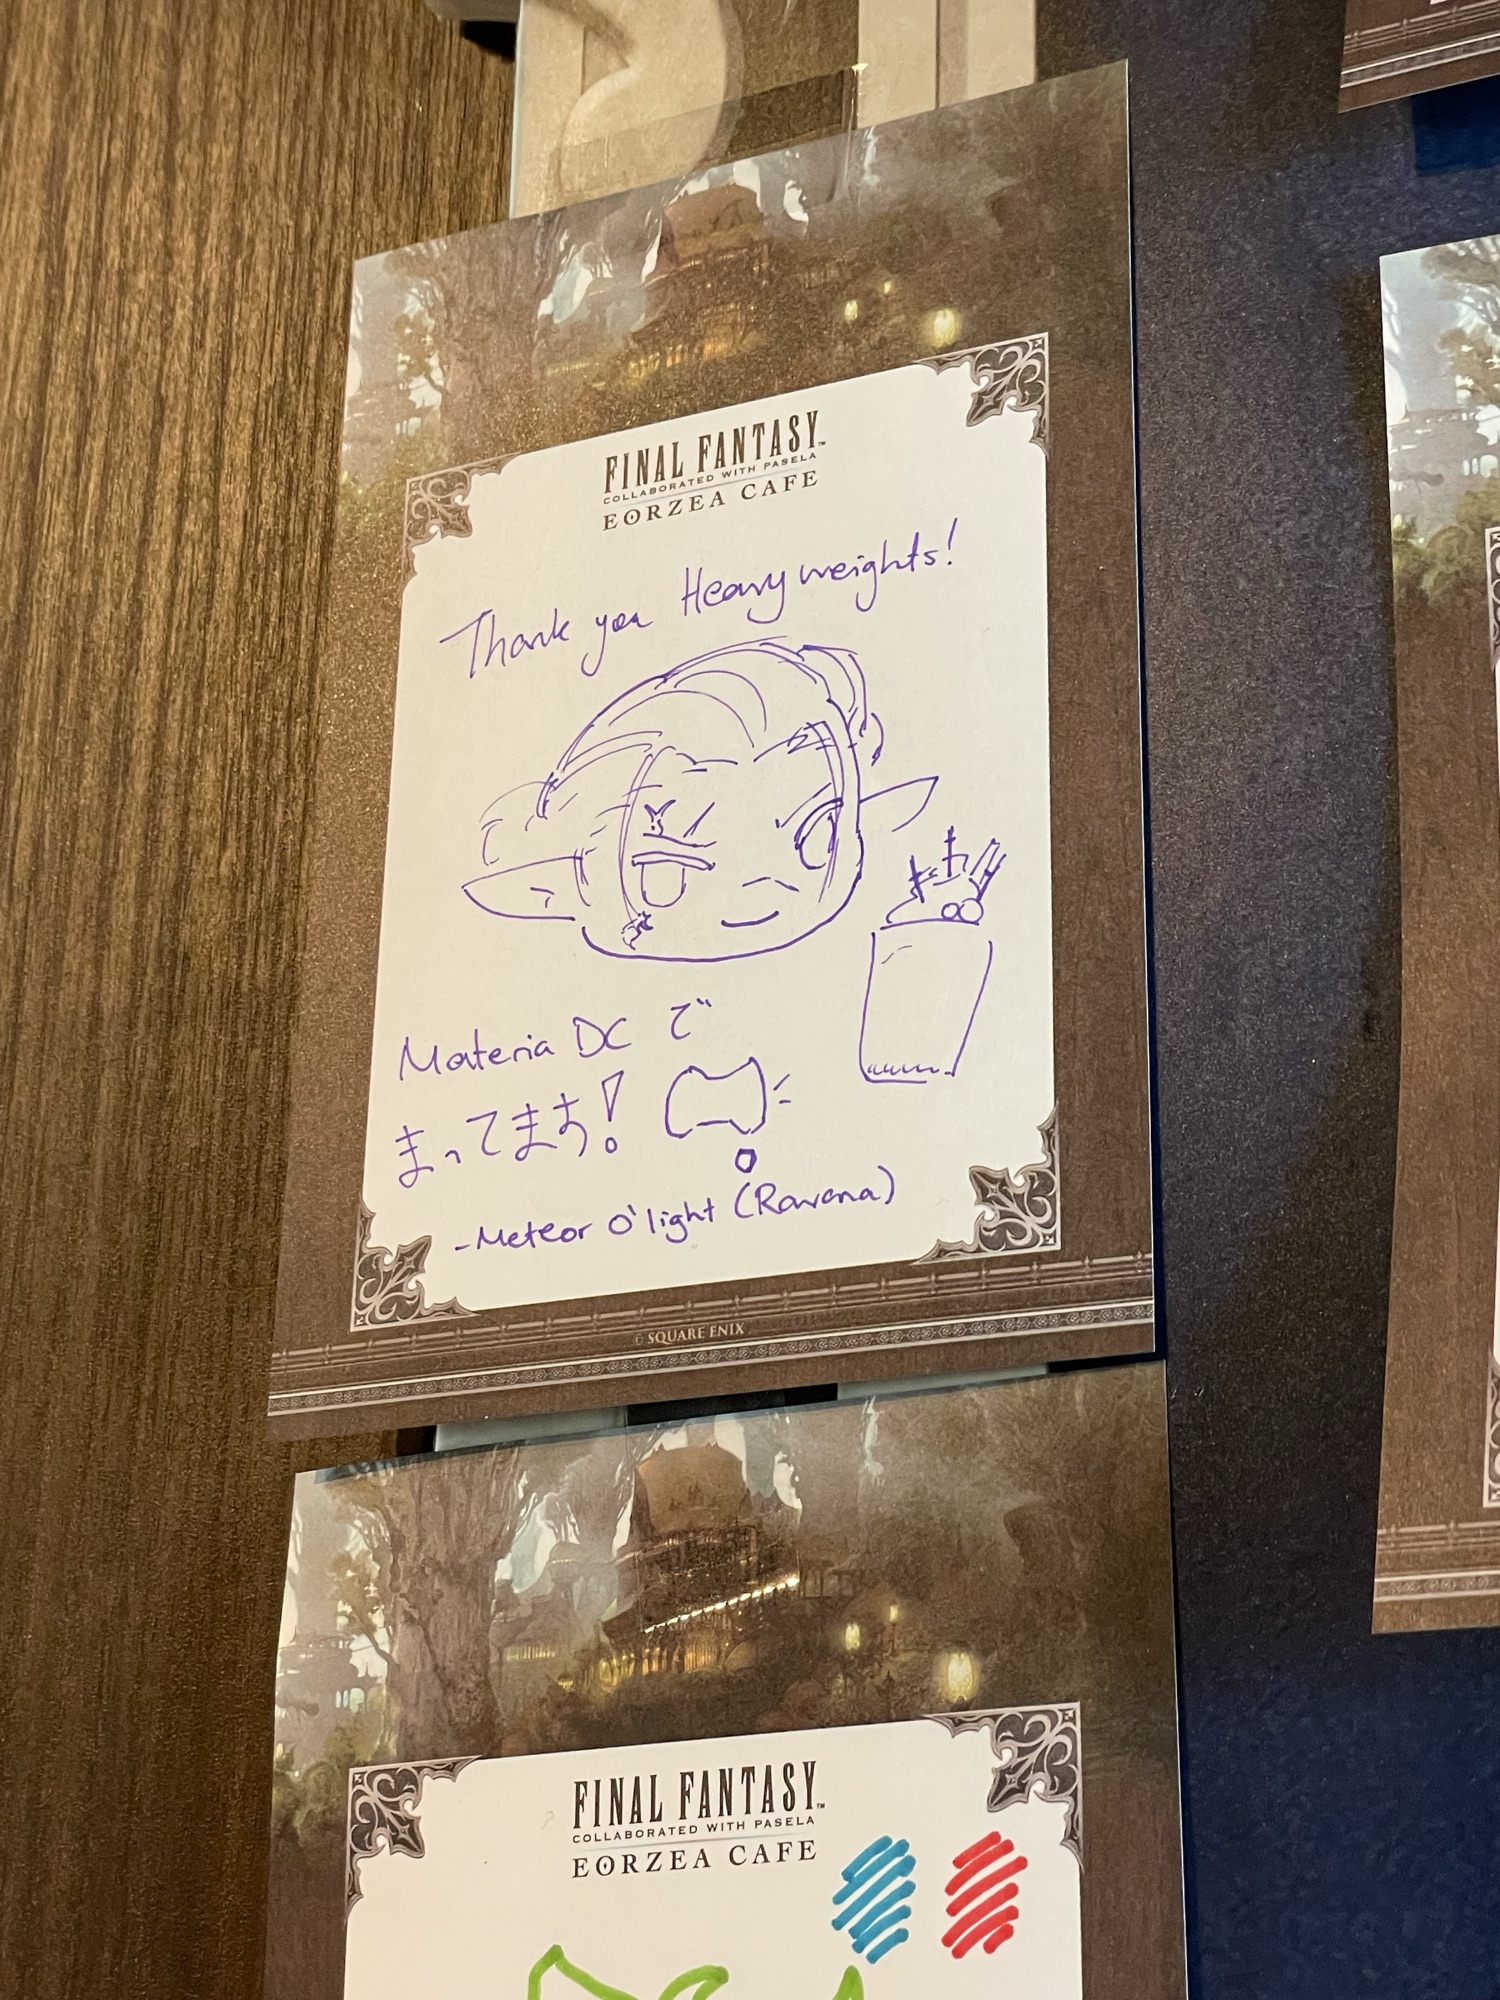 FINAL FANTASY™
COLLABORATED WITH PASELA
EORZEA CAFE
Thank you Heavyweights!
Materia DC で
まってます!
-Meteor O'light (Ravana)
© SQUARE ENIX
FINAL FANTASY™
COLLABORATED WITH PASELA
EORZEA CAFE